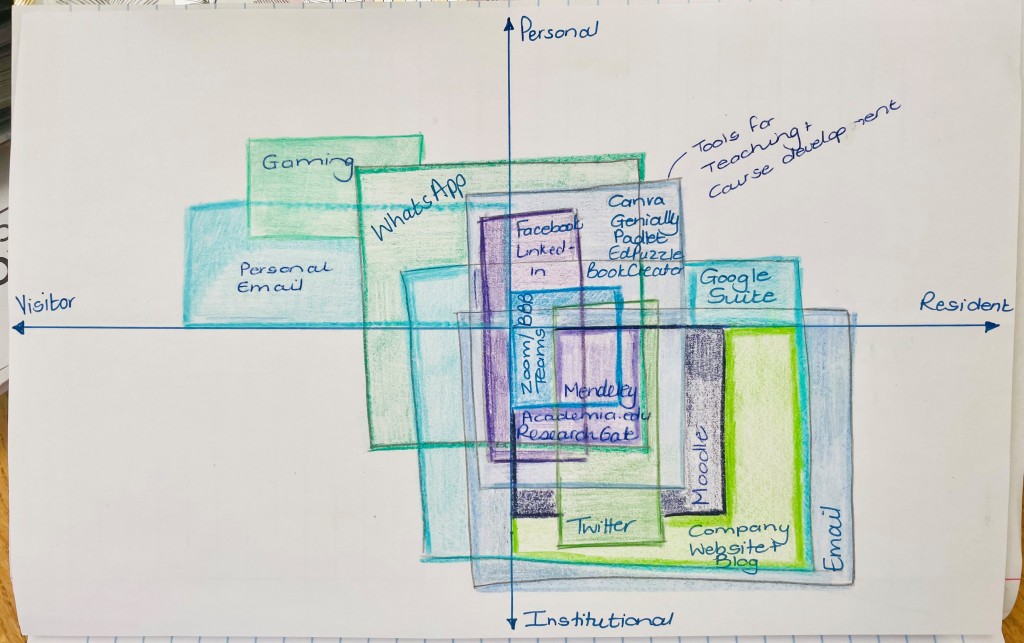 Personal
Tools for
Teaching +
Course development
Gaming
WhatsApp
Canva
Genially
Padlet
EdPuzzle
BookCreator
Facebook
Linked-
in
Personal
Email
Google
Suite
Visitor
Resident
Zoom/BBB
Teams
Mendeley
Academia.edu
ResearchGate
Moodle
Twitter
Company
Website +
Blog
Email
Institutional